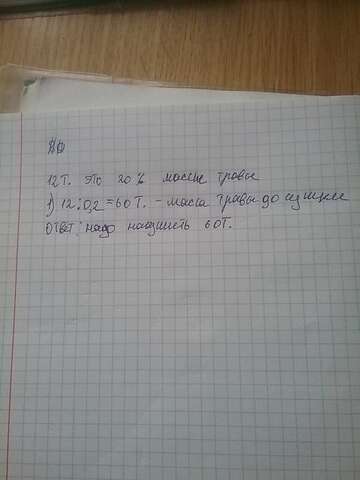 12т. это 20% массы травы
1) 12:0,2=60т. - масса травы до сушки
Ответ: надо накосить 60т.